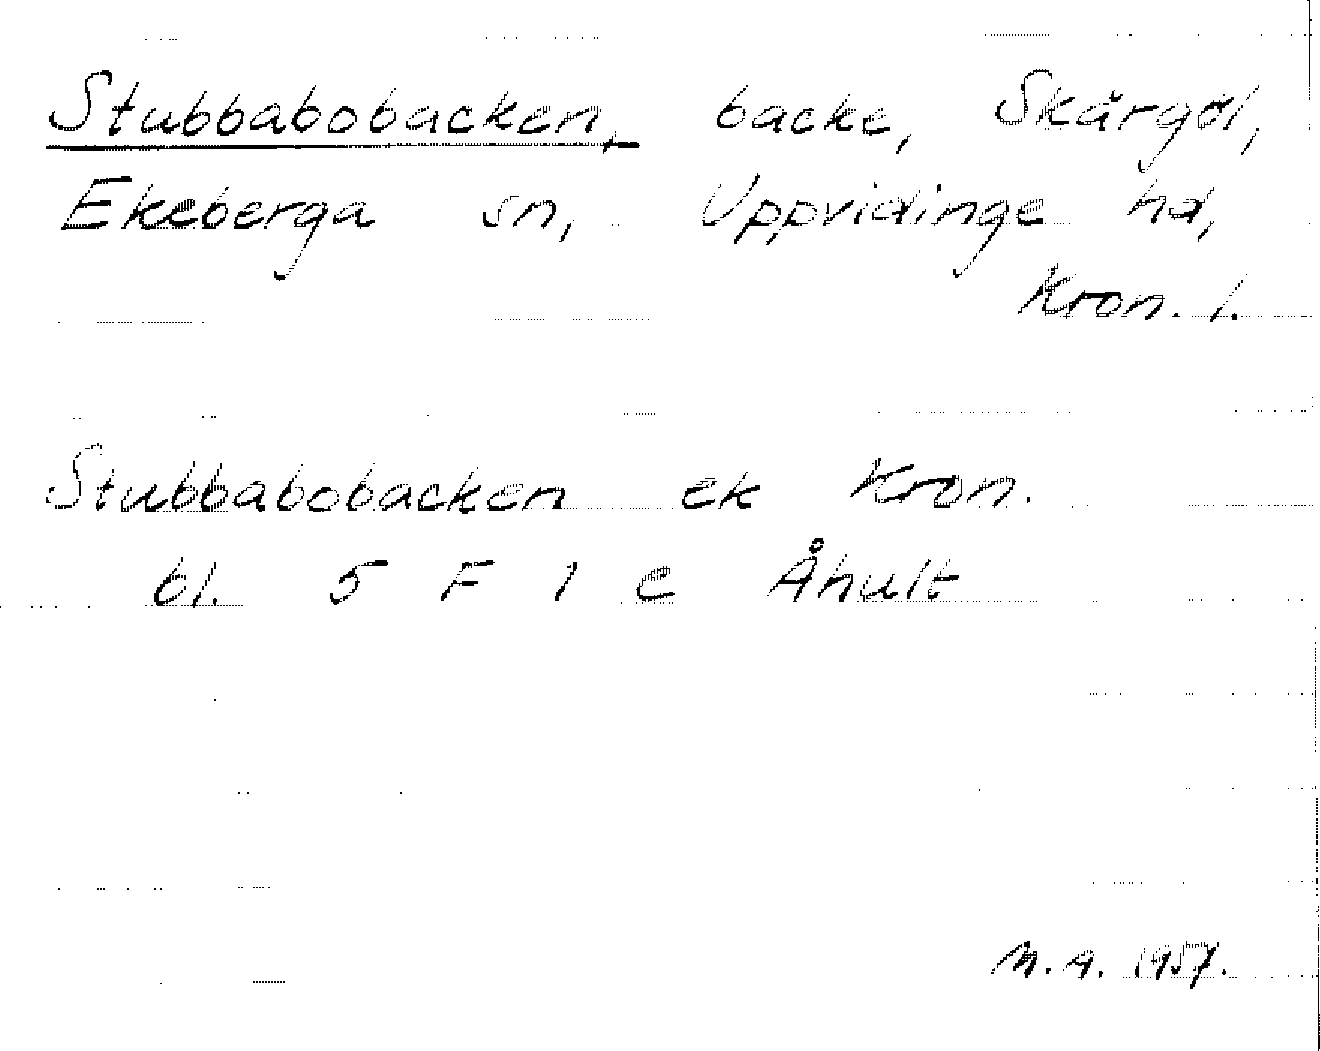 Stubbabobacken, backe, Skärgöl,
Ekeberga sn, Uppvidinge hd,
Kron. l.
Stubbabobacken ek Kron.
bl. 5 F 1 e Åhult
M. A. 1957.